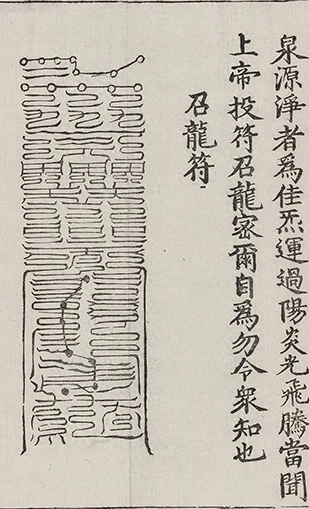 泉源淨者爲佳炁運過陽炎光飛騰當聞
上帝投符召龍密爾自爲勿令衆知也
召龍符